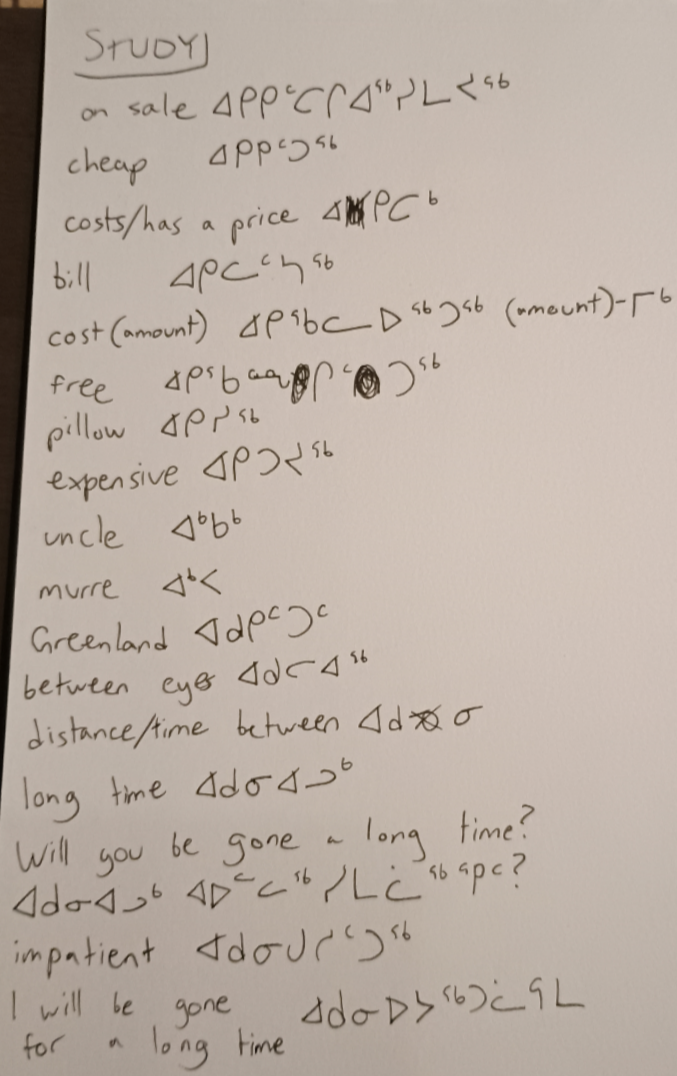 STUDY
on sale ᐊᑭᑭᑦᑕᒋᐊᖅᓯᒪᔪᖅ
cheap ᐊᑭᑭᑦᑐᖅ
costs/has a price ᐊᑭᑕᒃ
bill ᐊᑭᓕᑦᓴᖅ
cost (amount) ᐊᑭᖃᓕᐅᖅᑐᖅ (amount)-ᒥᒃ
free ᐊᑭᖃᓐᖏᑦᑐᖅ
pillow ᐊᑭᓯᖅ
expensive ᐊᑭᑐᔪᖅ
uncle ᐊᒃᑲᒃ
murre ᐊᒃᐸ
Greenland ᐊᑯᑭᑦᑐᑦ
between eyes ᐊᑯᓕᐊᖅ
distance/time between ᐊᑯᓂ
long time ᐊᑯᓂᐊᓗᒃ
Will you be gone a long time?
ᐊᑯᓂᐊᓗᒃ ᐊᐅᓪᓚᖅᓯᒪᓛᖅᕿᑕ?
impatient ᐊᑯᓂᙳᓯᑦᑐᖅ
I will be gone ᐊᑯᓂᐅᔭᖅᑐᓛᕋᒪ
for a long time